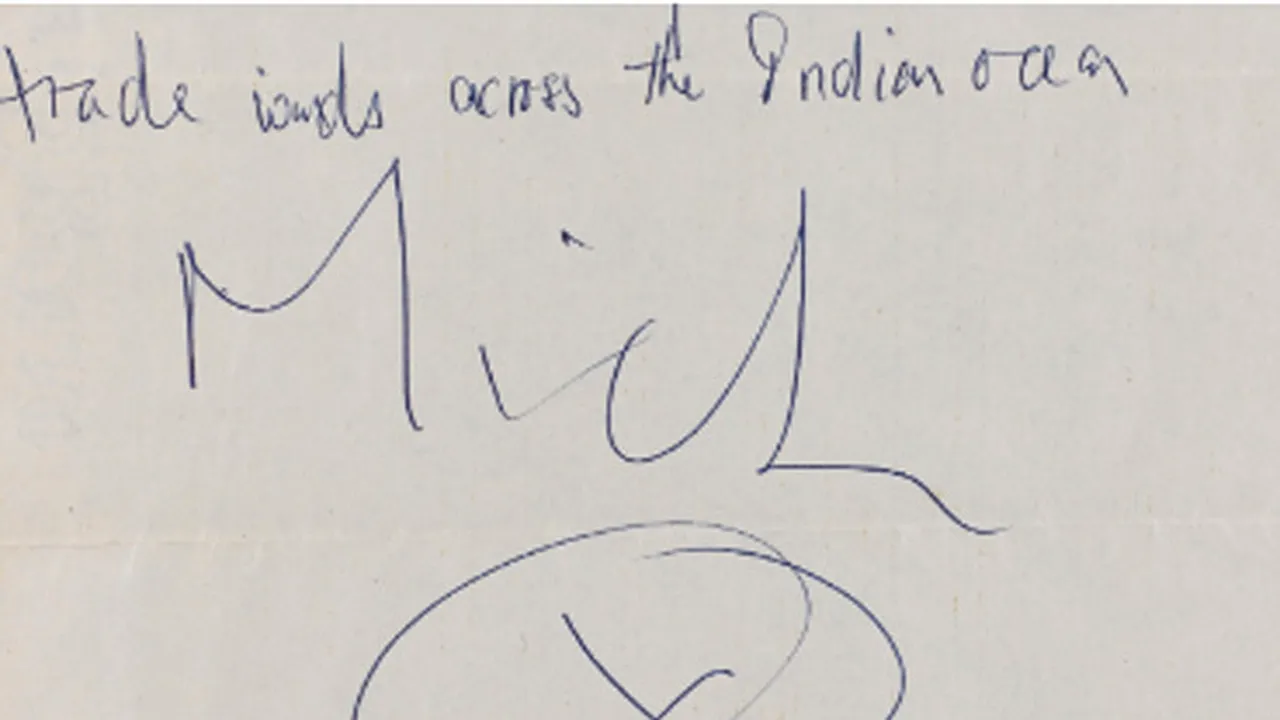 trade winds across the Indian ocean
Mick